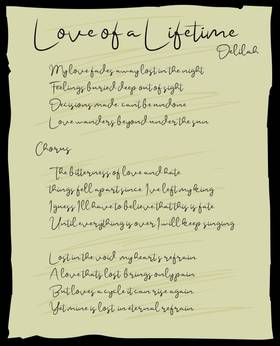 Love of a Lifetime
Delilah
My love fades away lost in the night
Feelings buried deep out of sight
Decisions made cant be undone
Love wanders beyond under the sun
Chorus
The bitterness of love and hate
things fell apart since I've left my king
I guess I'll have to believe that this is fate
Until everything is over I will keep singing
Lost in the void my heart's refrain
A love thats lost brings only pain
But loves a cycle it can rise again
Yet mine is lost in eternal refrain